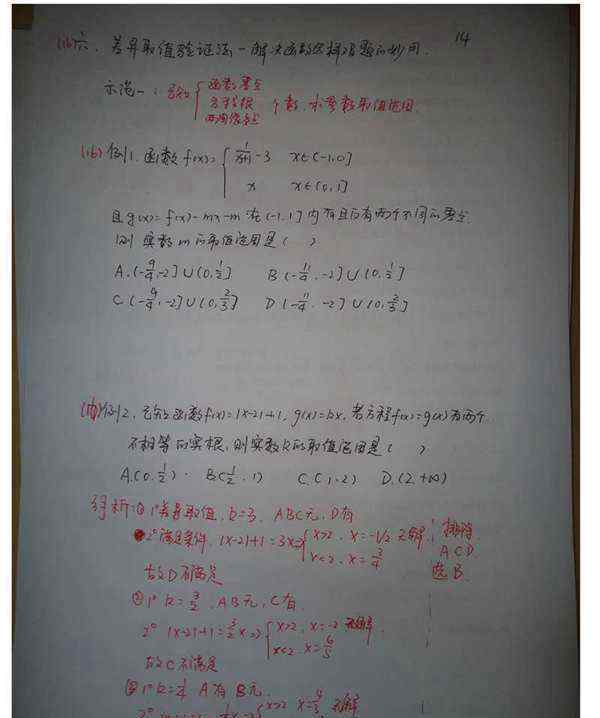 14
六、差异取值验证法-解决函数选择题的妙用.
示范一:已知 函数零点
方程根 个数,求参数取值范围.
两图像交点
例1.函数f(x)= { 1/(x+1) -3 x∈(-1,0]
x x∈(0,1]
且g(x)=f(x)-mx-m在(-1,1]内有且仅有两个不同的零点.
则实数m的取值范围是( )
A.(-9/4,-2]∪(0,1/2] B(-11/4,-2]∪(0,1/2]
C.(-9/4,-2]∪(0,2/3] D(-11/4,-2]∪(0,2/3]
例2.已知函数f(x)=|x-2|+1,g(x)=kx,若方程f(x)=g(x)有两个
不相等的实根,则实数k的取值范围是( )
A.(0,1/2) B(1/2,1) C.(1,2) D.(2,+∞)
①1°差异取值,k=3, ABC无,D有
2°满足条件,|x-2|+1=3x⇒ { x>2, x=-1/2 无解 排除
x<2, x=3/4 ACD
故D不满足 选B.
②1° k=3/2, AB无,C有.
2° |x-2|+1=3/2x⇒ { x>2, x=-2 无解.
x<2 x=6/5
故C不满足
1° k=1/4 A有 B无.
x>2 x=4/3 无解